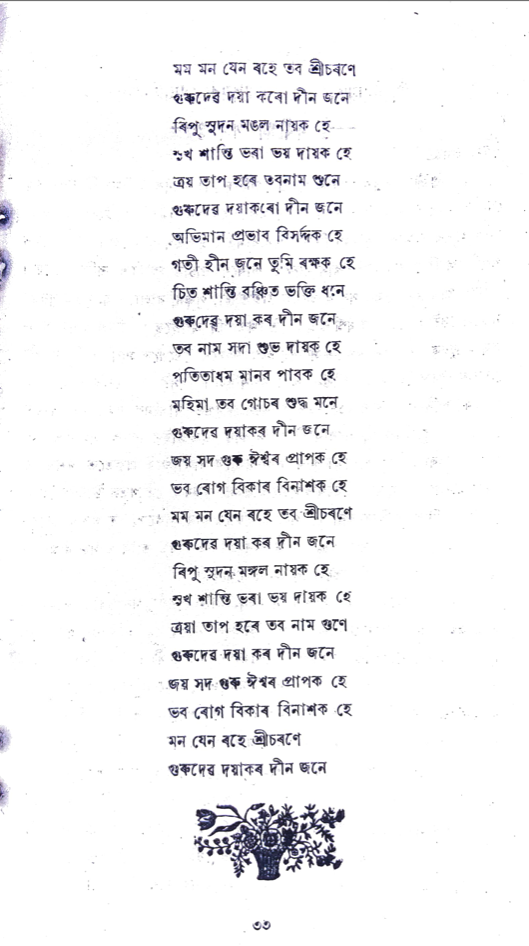 মম মন যেন ৰহে তব শ্রীচৰণে
গুৰুদেৱ দয়া কৰো দীন জনে
ৰিপু সুদন মঙল নায়ক হে
সুখ শান্তি ভৰা ভয় দায়ক হে
ত্রয় তাপ হৰে তবনাম শুনে
গুৰুদেৱ দয়াকৰো দীন জনে
অভিমান প্রভাব বিসৰ্দ্দক হে
গতী হীন জনে তুমি ৰক্ষক হে
চিত শান্তি বঞ্চিত ভক্তি ধনে
গুৰুদেৱ দয়া কৰ দীন জনে
তব নাম সদা শুভ দায়ক হে
পতিতাধম মানব পাবক হে
মহিমা তব গোচৰ শুদ্ধ মনে
গুৰুদেৱ দয়াকৰ দীন জনে
জয় সদ গুৰু ঈশ্বৰ প্রাপক হে
ভব ৰোগ বিকাৰ বিনাশক হে
মম মন যেন ৰহে তব শ্রীচৰণে
গুৰুদেৱ দয়া কৰ দীন জনে
ৰিপু সুদন মঙ্গল নায়ক হে
সুখ শান্তি ভৰা ভয় দায়ক হে
ত্রয়া তাপ হৰে তব নাম গুণে
গুৰুদেৱ দয়া কৰ দীন জনে
জয় সদ গুৰু ঈশ্বৰ প্রাপক হে
ভব ৰোগ বিকাৰ বিনাশক হে
মন যেন ৰহে শ্রীচৰণে
গুৰুদেৱ দয়াকৰ দীন জনে
৩৩